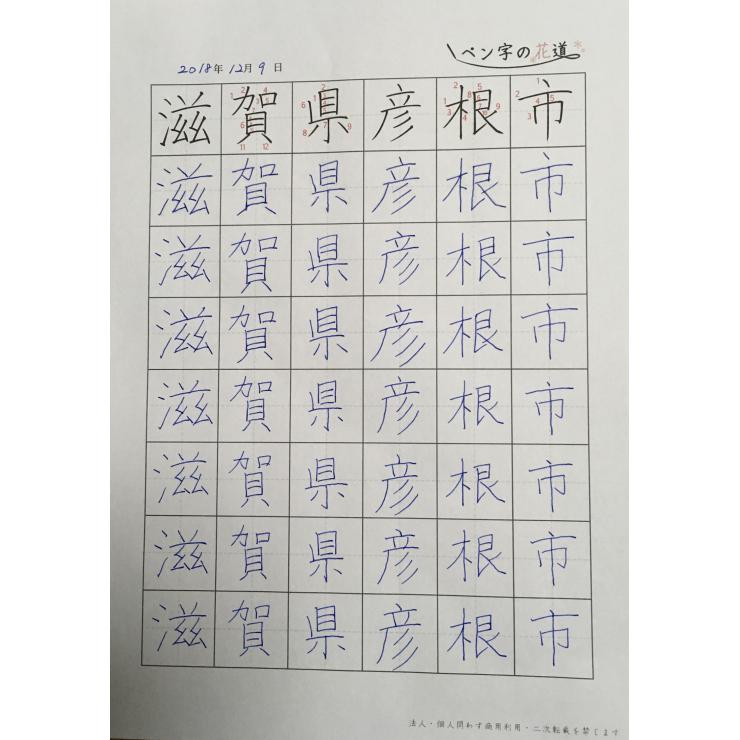 ペン字の花道
2018年12月9日
滋賀県彦根市
滋賀県彦根市
滋賀県彦根市
滋賀県彦根市
滋賀県彦根市
滋賀県彦根市
滋賀県彦根市
滋賀県彦根市
法人・個人問わず商用利用・二次転載を禁じます